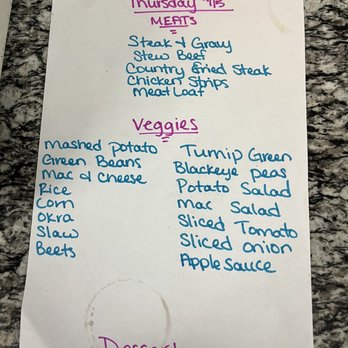 Thursday 9/15
MEATS
Steak & Gravy
Stew Beef
Country fried Steak
Chicken Strips
Meat Loaf
Veggies
mashed potato
Green Beans
Mac & Cheese
Rice
Corn
Okra
Slaw
Beets
Turnip Green
Blackeye peas
Potato Salad
mac Salad
Sliced Tomato
Sliced onion
Apple sauce